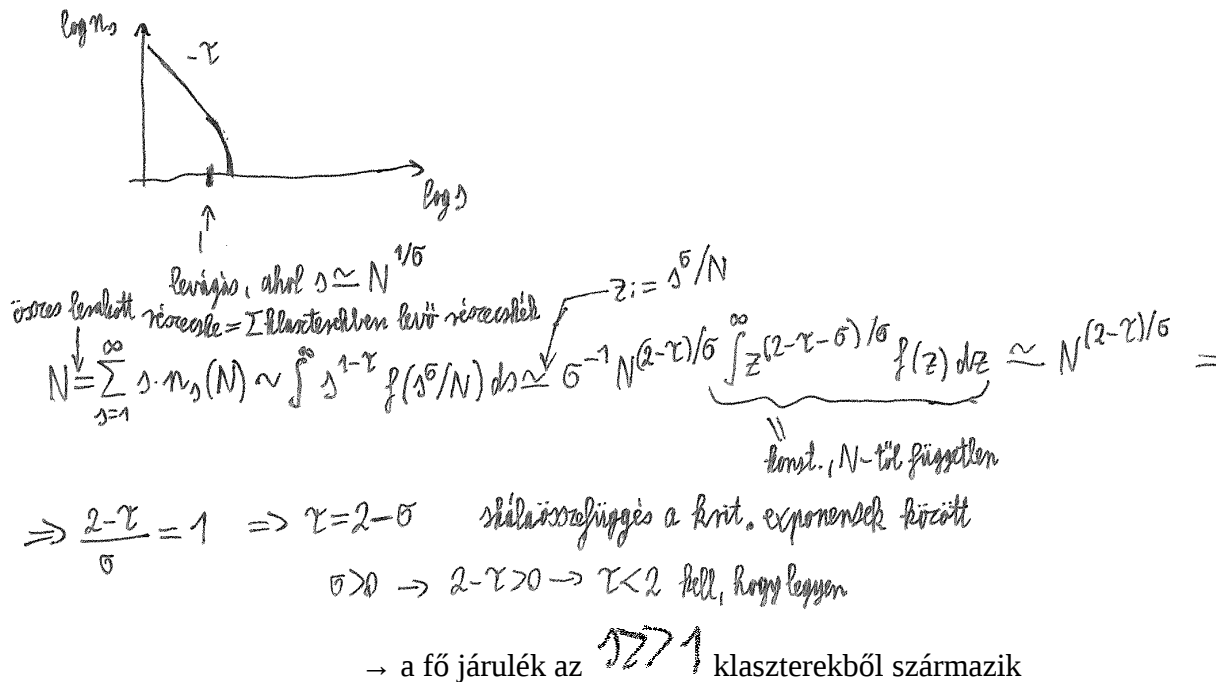 log nₛ
-τ
log s
levágás, ahol s ≃ N^{1/σ}
z := s^σ/N
összes lerakott részecske = Σ klaszterekben levő részecskék
N = ∑_{s=1}^{∞} s·nₛ(N) ~ ∫^{∞} s^{1-τ} f(s^σ/N) ds ≃ σ^{-1} N^{(2-τ)/σ} ∫^{∞} z^{(2-τ-σ)/σ} f(z) dz ≃ N^{(2-τ)/σ} =
konst., N-től független
⇒ (2-τ)/σ = 1 ⇒ τ = 2-σ skálaösszefüggés a krit. exponensek között
σ>0 → 2-τ>0 → τ<2 kell, hogy legyen
→ a fő járulék az s>>1 klaszterekből származik